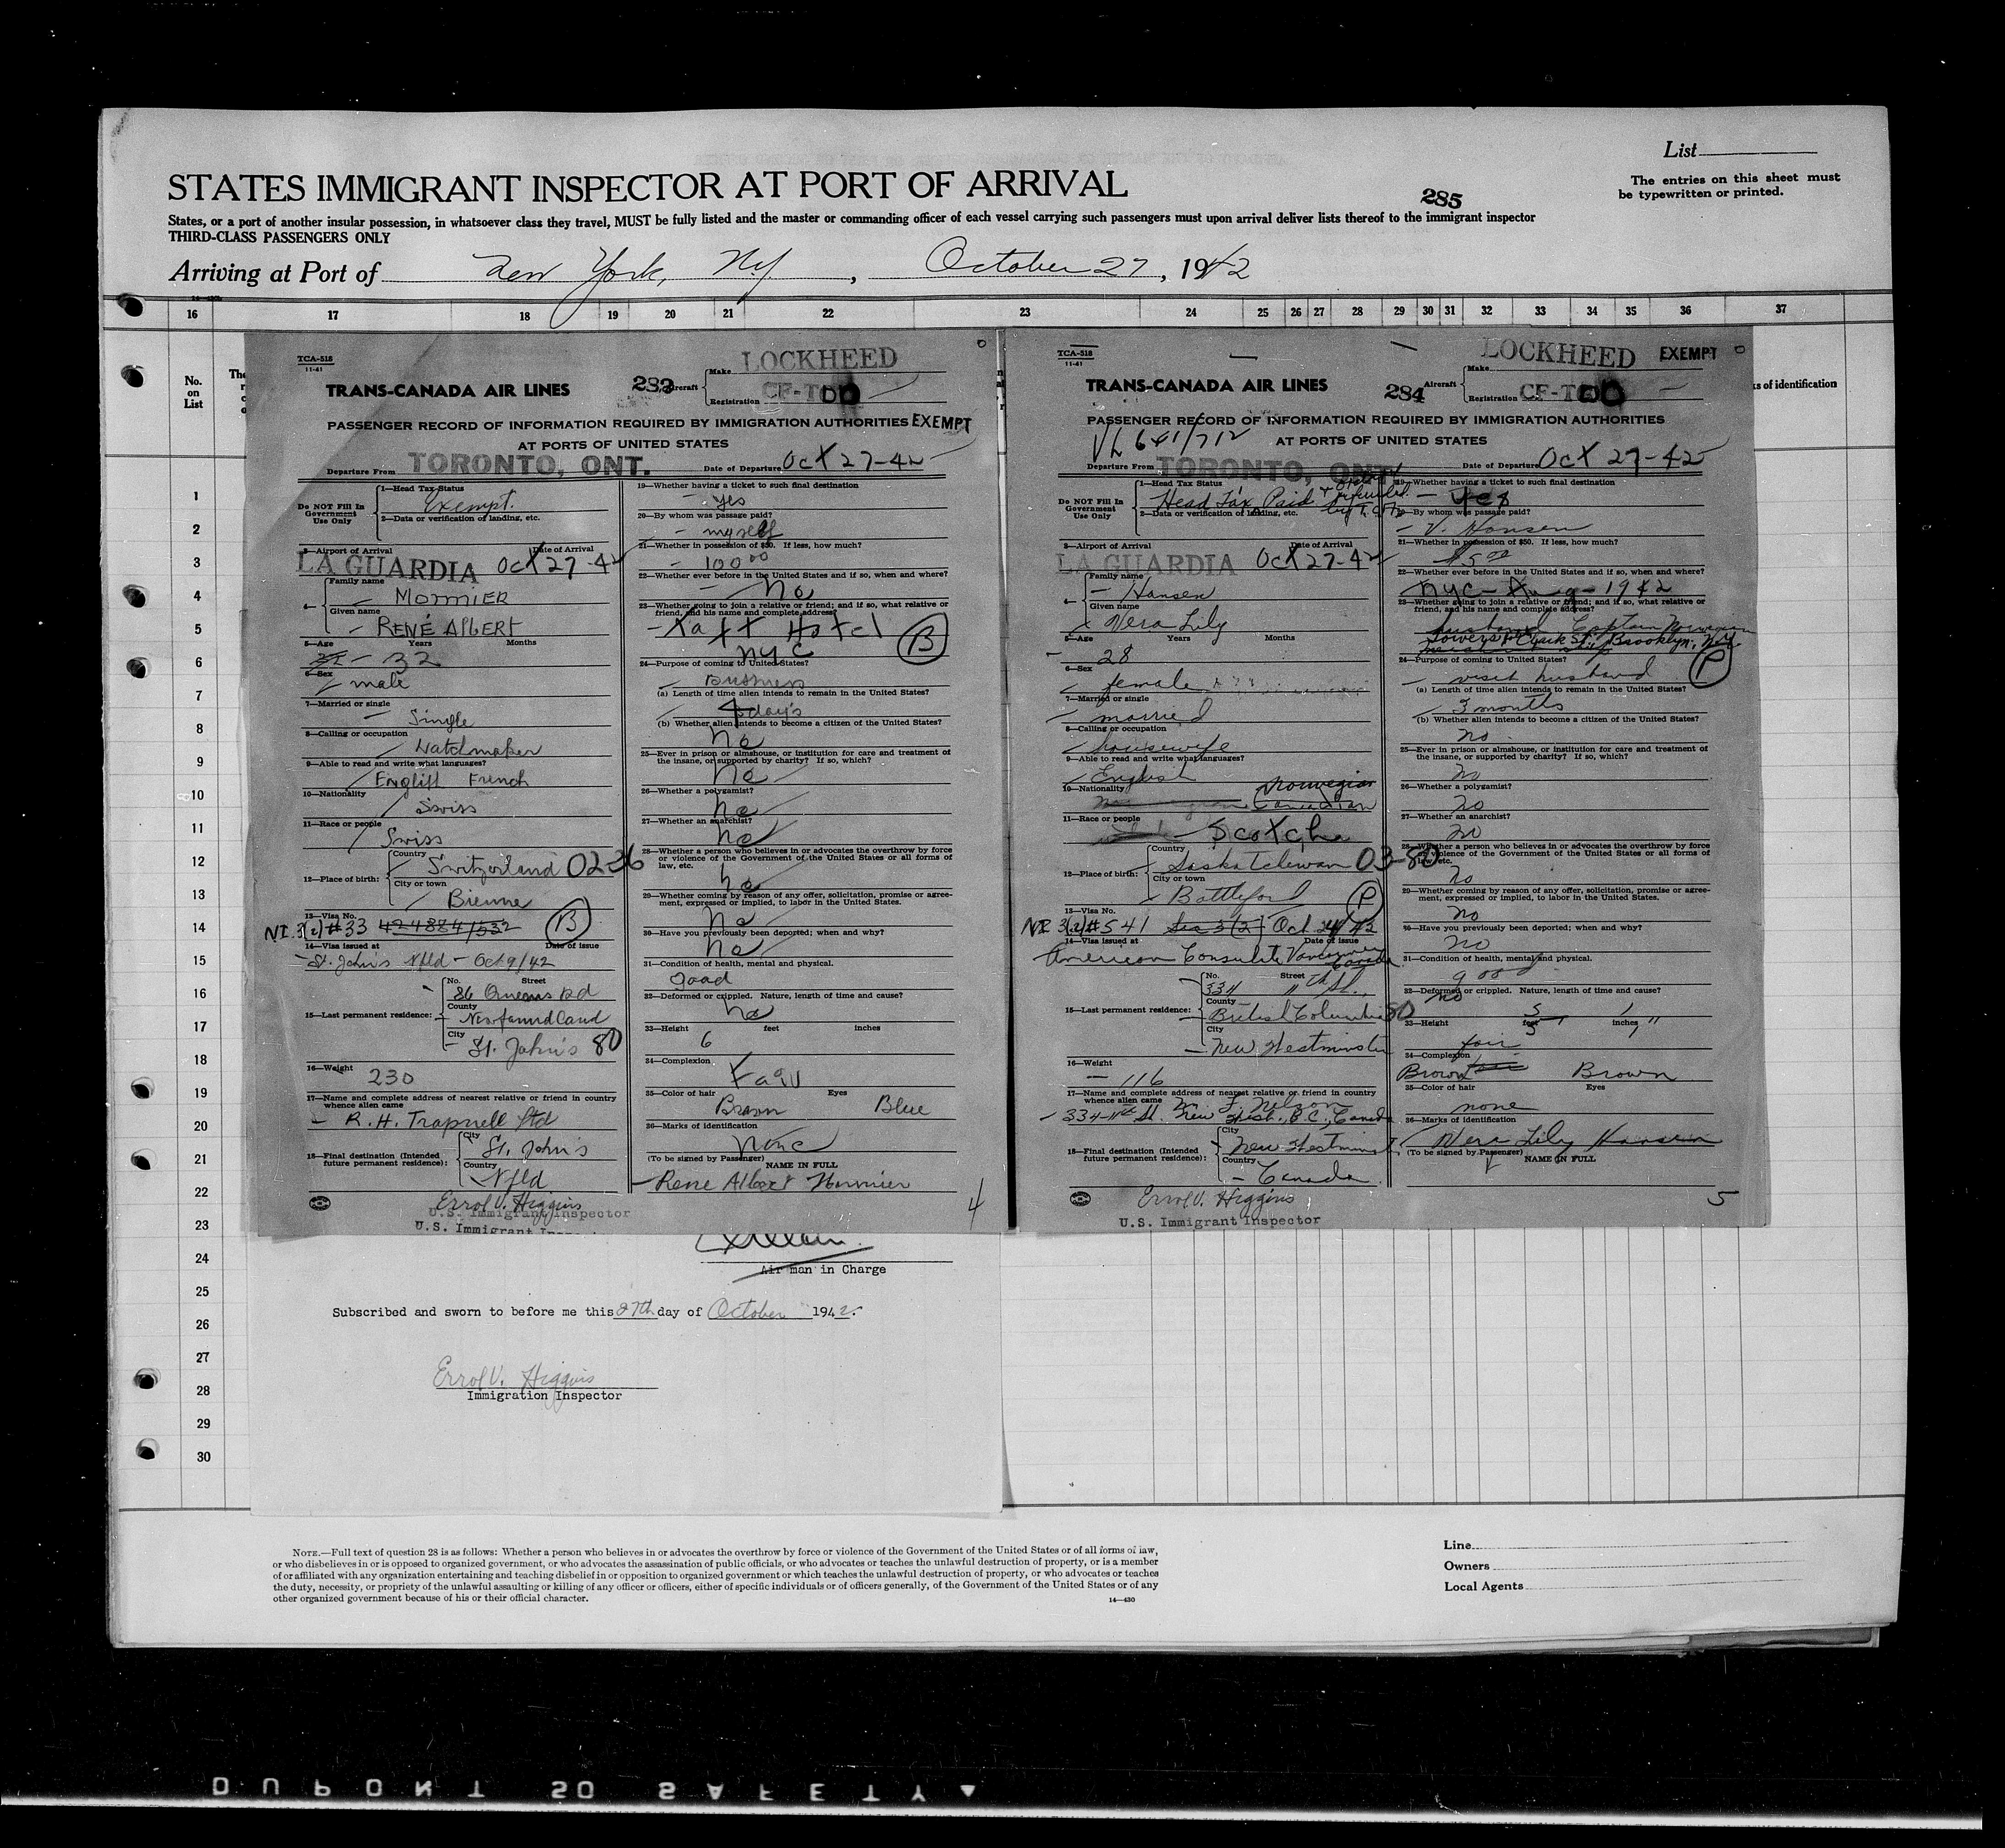 List
The entries on this sheet must
be typewritten or printed.
STATES IMMIGRANT INSPECTOR AT PORT OF ARRIVAL
285
States, or a port of another insular possession, in whatsoever class they travel, MUST be fully listed and the master or commanding officer of each vessel carrying such passengers must upon arrival deliver lists thereof to the immigrant inspector
THIRD-CLASS PASSENGERS ONLY
Arriving at Port of New York, NY, October 27, 1942
16 17 18 19 20 21 22 23 24 25 26 27 28 29 30 31 32 33 34 35 36 37
No. on List
ks of identification
1
2
3
4
5
6
7
8
9
10
11
12
13
14
15
16
17
18
19
20
21
22
23
24
25
26
27
28
29
30
TCA-518
11-41
TRANS-CANADA AIR LINES
283
Aircraft
Make LOCKHEED
Registration CF-TDD
PASSENGER RECORD OF INFORMATION REQUIRED BY IMMIGRATION AUTHORITIES EXEMPT
AT PORTS OF UNITED STATES
Departure From TORONTO, ONT. Date of Departure Oct 27-42
Do NOT Fill In
Government
Use Only
1—Head Tax Status
Exempt.
2—Data or verification of landing, etc.
3—Airport of Arrival Date of Arrival
LA GUARDIA Oct 27-42
4— Family name
MONNIER
Given name
RENÉ AlbERT
5—Age Years Months
32
6—Sex
male
7—Married or single
Single
8—Calling or occupation
Watchmaker
9—Able to read and write what languages?
English French
10—Nationality
Swiss
11—Race or people
Swiss
12—Place of birth:
Country
Switzerland 02-36
City or town
Bienne
13—Visa No.
NI 3(2) #33 424884/532 B
14—Visa issued at Date of issue
St. John's Nfld - Oct 9/42
15—Last permanent residence:
No. Street
86 Queens Rd
County
Newfoundland
City
St. John's 80
16—Weight
230
17—Name and complete address of nearest relative or friend in country
whence alien came
R. H. Trapnell Ltd
18—Final destination (Intended
future permanent residence):
City
St. John's
Country
Nfld
Errol V. Higgins
U.S. Immigrant Inspector
U.S. Immigrant
19—Whether having a ticket to such final destination
Yes
20—By whom was passage paid?
myself
21—Whether in possession of $50. If less, how much?
100 00
22—Whether ever before in the United States and if so, when and where?
No
23—Whether going to join a relative or friend; and if so, what relative or
friend, and his name and complete address?
Taft Hotel
NYC B
24—Purpose of coming to United States?
Business
(a) Length of time alien intends to remain in the United States?
days
(b) Whether alien intends to become a citizen of the United States?
No
25—Ever in prison or almshouse, or institution for care and treatment of
the insane, or supported by charity? If so, which?
No
26—Whether a polygamist?
No
27—Whether an anarchist?
No
28—Whether a person who believes in or advocates the overthrow by force
or violence of the Government of the United States or all forms of
law, etc.
No
29—Whether coming by reason of any offer, solicitation, promise or agree-
ment, expressed or implied, to labor in the United States.
No
30—Have you previously been deported; when and why?
No
31—Condition of health, mental and physical.
good
32—Deformed or crippled. Nature, length of time and cause?
No
33—Height feet inches
6
34—Complexion
Fair
35—Color of hair Eyes
Brown Blue
36—Marks of identification
None
(To be signed by Passenger)
NAME IN FULL
Rene Albert Monnier
4
TCA-518
11-41
TRANS-CANADA AIR LINES
284
Aircraft
Make LOCKHEED EXEMPT
Registration CF-TDD
PASSENGER RECORD OF INFORMATION REQUIRED BY IMMIGRATION AUTHORITIES
AT PORTS OF UNITED STATES
VL 641/712
Departure From TORONTO, ONT Date of Departure Oct 27-42
Do NOT Fill In
Government
Use Only
1—Head Tax Status
Head Tax Paid
2—Data or verification of landing, etc.
3—Airport of Arrival Date of Arrival
LA GUARDIA Oct 27-42
4— Family name
Hansen
Given name
Vera Lily
5—Age Years Months
28
6—Sex
female
7—Married or single
married
8—Calling or occupation
housewife
9—Able to read and write what languages?
English
10—Nationality
Norwegian
Canadian
11—Race or people
Scotch
12—Place of birth:
Country
Saskatchewan 03-80
City or town
Battleford P
13—Visa No.
NI 3(2) #541 Sec 3(2) Oct 24/42
14—Visa issued at Date of issue
American Consulate Vancouver
Canada
15—Last permanent residence:
No. Street
334 11th St.
County
British Columbia 80
City
New Westminster
16—Weight
116
17—Name and complete address of nearest relative or friend in country
whence alien came
F. Nelson
334-11th St. New West., B.C., Canada
18—Final destination (Intended
future permanent residence):
City
New Westminst
Country
Canada
Errol V. Higgins
U.S. Immigrant Inspector
19—Whether having a ticket to such final destination
Yes
20—By whom was passage paid?
V. Hansen
21—Whether in possession of $50. If less, how much?
$5 00
22—Whether ever before in the United States and if so, when and where?
NYC - Aug - 1942
23—Whether going to join a relative or friend; and if so, what relative or
friend, and his name and complete address?
husband Captain Norwegian
Towers Clark St. Brooklyn, N.Y.
24—Purpose of coming to United States?
visit husband P
(a) Length of time alien intends to remain in the United States?
3 months
(b) Whether alien intends to become a citizen of the United States?
no
25—Ever in prison or almshouse, or institution for care and treatment of
the insane, or supported by charity? If so, which?
no
26—Whether a polygamist?
no
27—Whether an anarchist?
no
28—Whether a person who believes in or advocates the overthrow by force
or violence of the Government of the United States or all forms of
law, etc.
no
29—Whether coming by reason of any offer, solicitation, promise or agree-
ment, expressed or implied, to labor in the United States.
no
30—Have you previously been deported; when and why?
no
31—Condition of health, mental and physical.
good
32—Deformed or crippled. Nature, length of time and cause?
no
33—Height feet inches
5 1
34—Complexion
fair
35—Color of hair Eyes
Brown Brown
36—Marks of identification
none
Vera Lily Hansen
(To be signed by Passenger)
NAME IN FULL
5
Air man in Charge
Subscribed and sworn to before me this 27th day of October 1942.
Errol V. Higgins
Immigration Inspector
NOTE.—Full text of question 28 is as follows: Whether a person who believes in or advocates the overthrow by force or violence of the Government of the United States or of all forms of law,
or who disbelieves in or is opposed to organized government, or who advocates the assassination of public officials, or who advocates or teaches the unlawful destruction of property, or is a member
of or affiliated with any organization entertaining and teaching disbelief in or opposition to organized government or which teaches the unlawful destruction of property, or who advocates or teaches
the duty, necessity, or propriety of the unlawful assaulting or killing of any officer or officers, either of specific individuals or of officers generally, of the Government of the United States or of any
other organized government because of his or their official character.
14—430
Line
Owners
Local Agents
DUPONT SO SAFETY